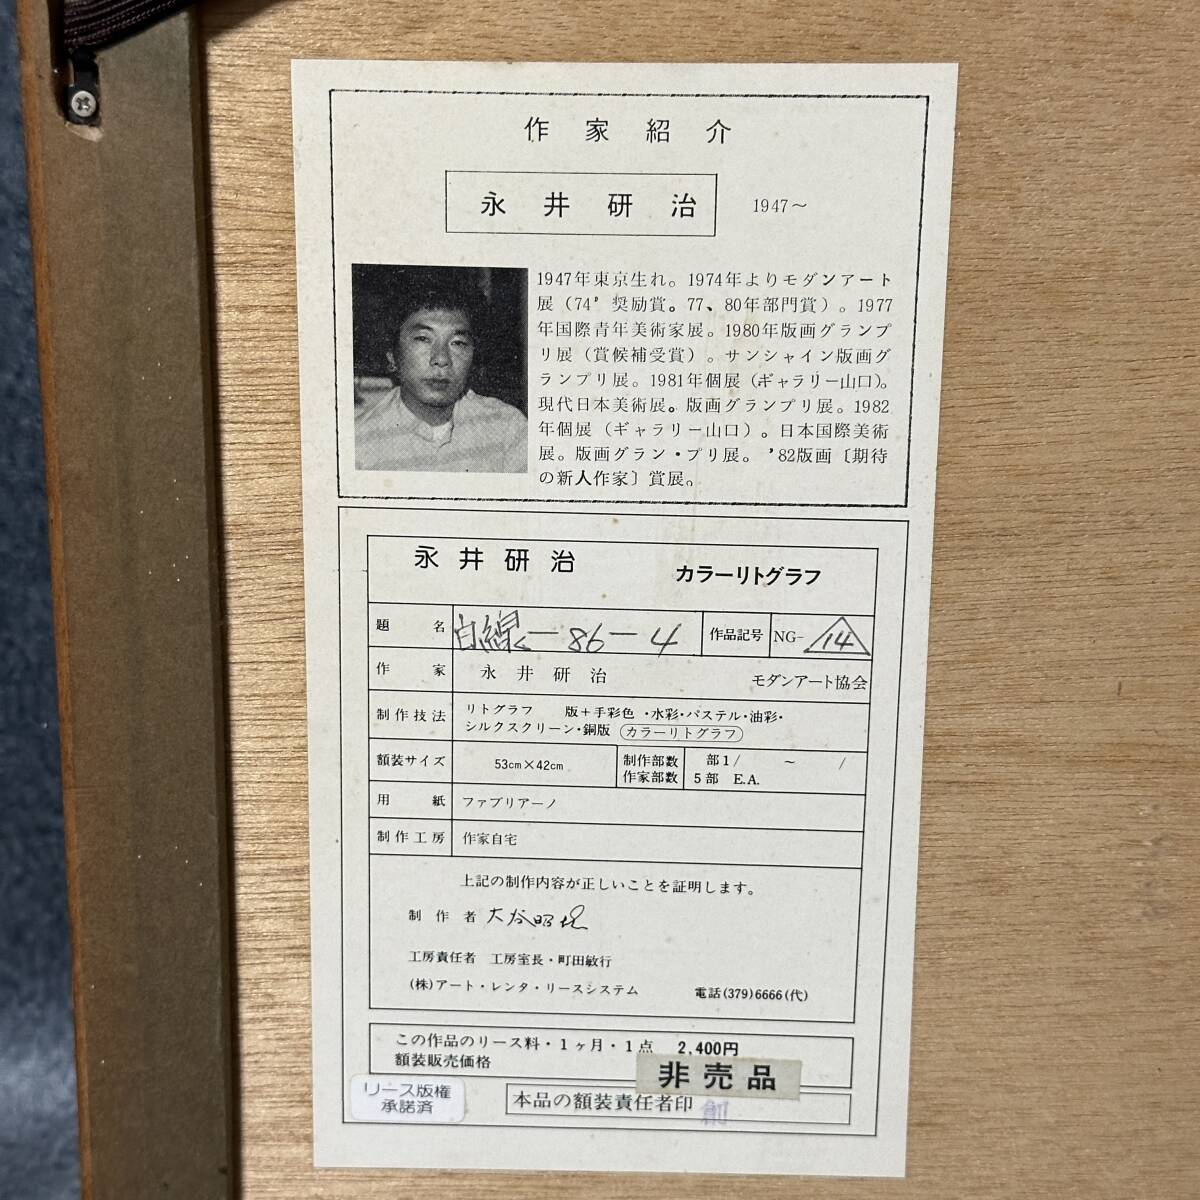 作家紹介
永井研治 1947〜
1947年東京生れ。1974年よりモダンアート
展（74’奨励賞。77、80年部門賞）。1977
年国際青年美術家展。1980年版画グランプ
リ展（賞候補受賞）。サンシャイン版画グ
ランプリ展。1981年個展（ギャラリー山口）。
現代日本美術展。版画グランプリ展。1982
年個展（ギャラリー山口）。日本国際美術
展。版画グラン・プリ展。’82版画〔期待
の新人作家〕賞展。
永井研治 カラーリトグラフ
題名 白線－86－4 作品記号 NG- 14
作家 永井研治 モダンアート協会
制作技法 リトグラフ 版＋手彩色・水彩・パステル・油彩・
シルクスクリーン・銅版 カラーリトグラフ
額装サイズ 53cm×42cm 制作部数 部1/ 〜 /
作家部数 5部 E.A.
用紙 ファブリアーノ
制作工房 作家自宅
上記の制作内容が正しいことを証明します。
制作者 大谷昭
工房責任者 工房室長・町田敏行
(株)アート・レンタ・リースシステム 電話(379)6666(代)
この作品のリース料・1ヶ月・1点 2,400円
額装販売価格 非売品
リース版権
承諾済
本品の額装責任者印 創